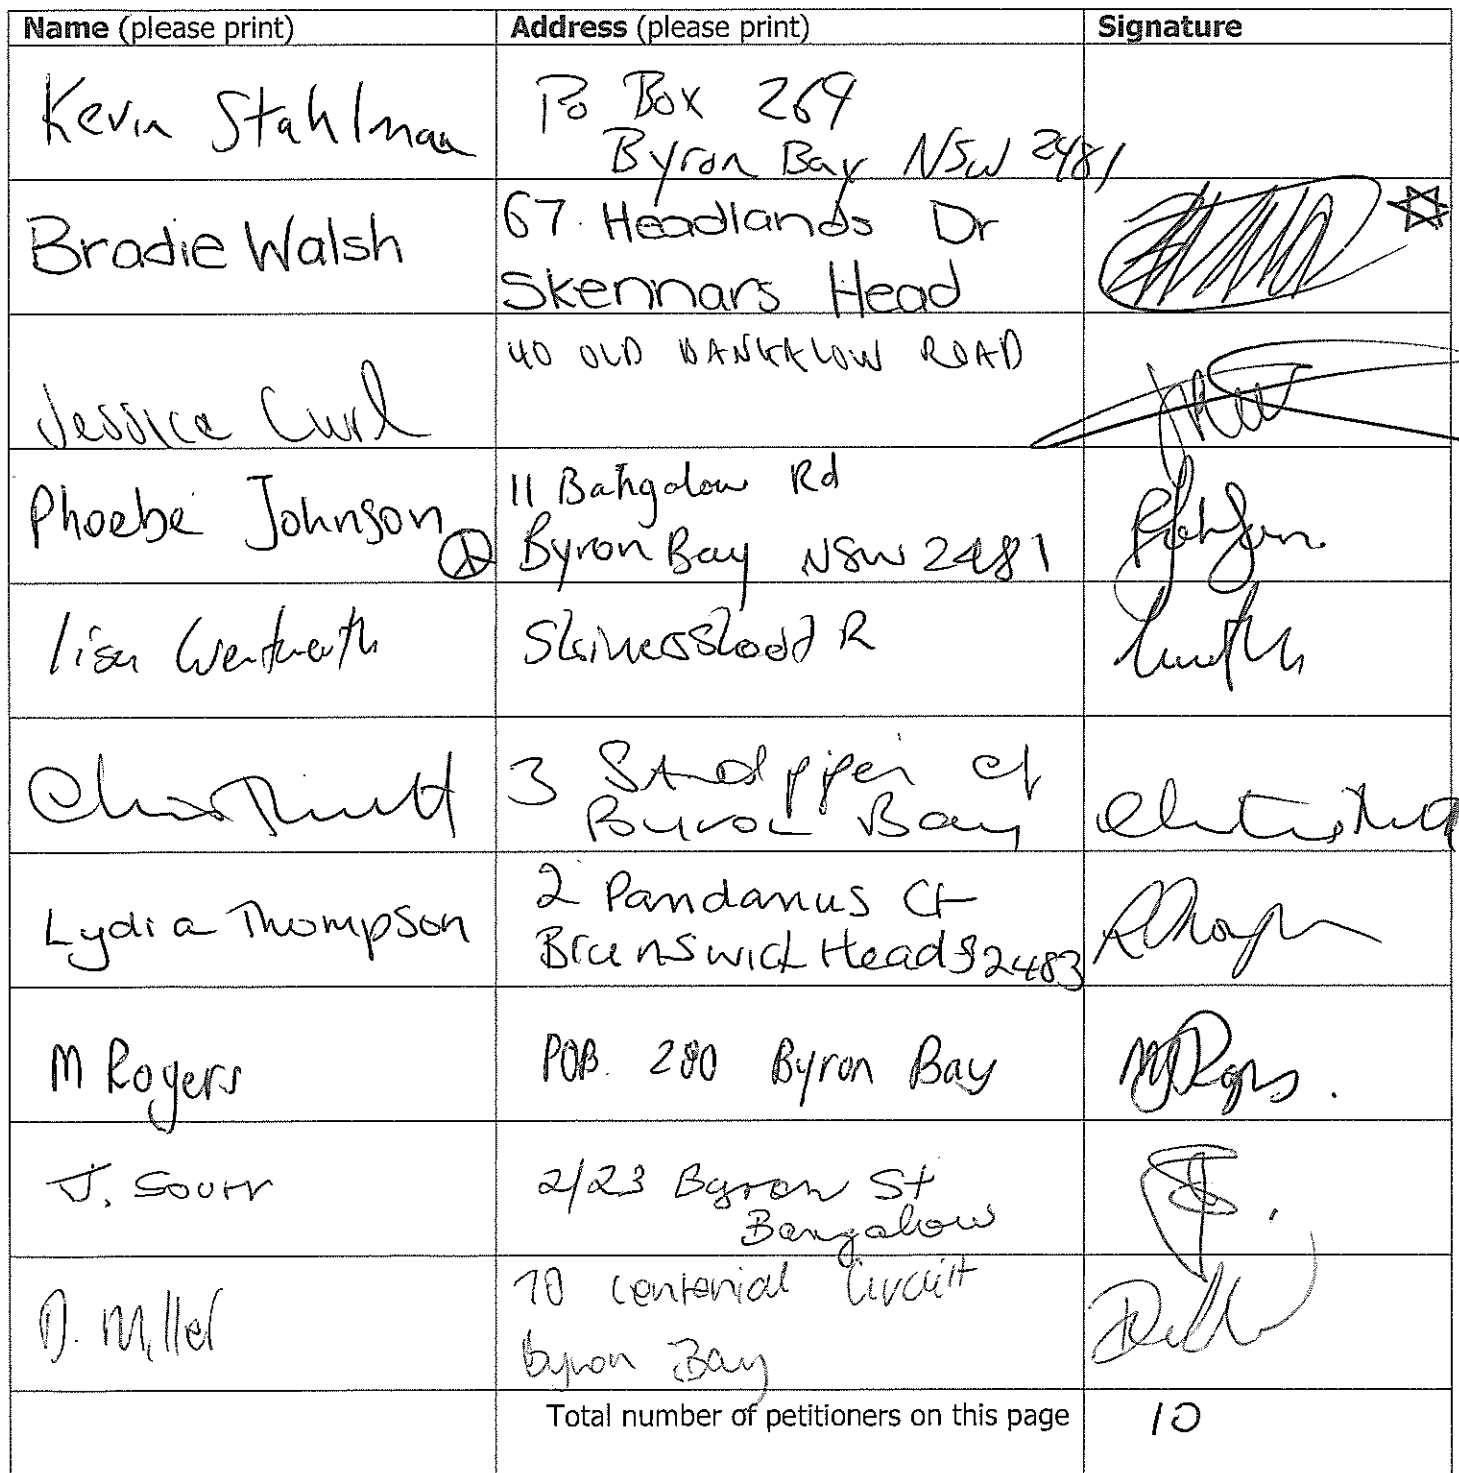 Name (please print) Address (please print) Signature
Kevin Stahlman PO Box 269
Byron Bay NSW 2481
Brodie Walsh 67 Headlands Dr
Skennars Head
40 OLD BANGALOW ROAD
Jessica Curl
Phoebe Johnson 11 Bangalow Rd
Byron Bay NSW 2481
lisa Wentworth R
3 Sandpiper ct
Byron Bay
Lydia Thompson 2 Pandanus Ct
Brunswick Heads 2483
M Rogers POB. 280 Byron Bay
J. 2/23 Byron St
Bangalow
D. Miller 70 Centenial Circuit
Byron Bay
Total number of petitioners on this page 10